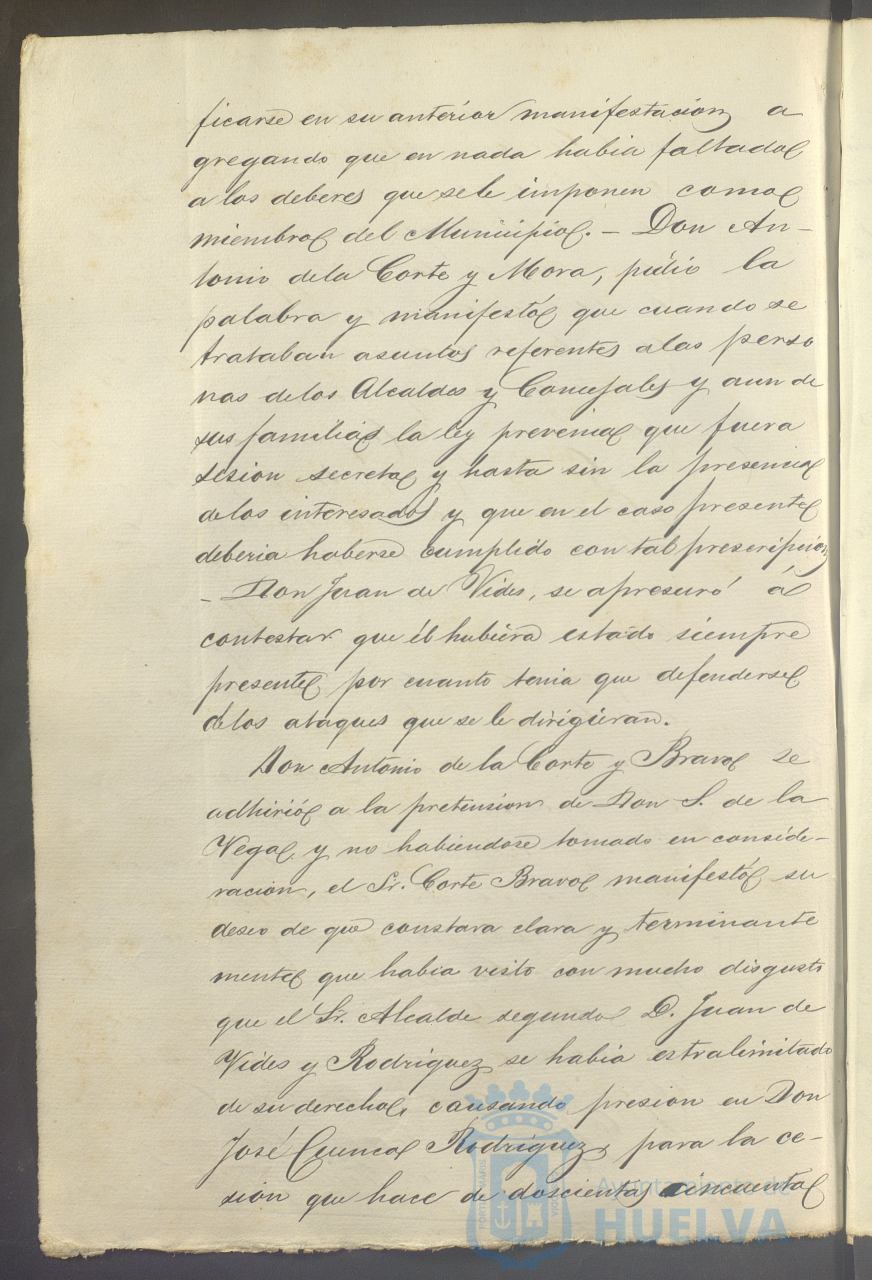 ficarse en su anterior manifestacion, a
gregando que en nada habia faltado
a los deberes que se le imponen como
miembro del Municipio. - Don An-
tonio de la Corte y Mora, pidió la
palabra y manifestó que cuando se
trataban asuntos referentes a las perso
nas de los Alcaldes y Concejales y aun de
sus familias la ley prevenia que fuera
sesion secreta y hasta sin la presencia
de los interesados y que en el caso presente
deberia haberse cumplido con tal prescripcion
- Don Juan de Vides, se apresuró á
contestar que él hubiera estado siempre
presente por cuanto tenia que defenderse
de los ataques que se le dirigieran.
Don Antonio de la Corte y Bravo se
adhirió a la pretension de Don S. de la
Vega, y no habiendose tomado en conside-
racion, el Sr. Corte Bravo manifestó su
deseo de que constara clara y terminante
mente que habia visto con mucho disgusto
que el Sr. Alcalde segundo D. Juan de
Vides y Rodriguez se habia estralimitado
de su derecho, causando presion en Don
José Cuenca Rodriguez, para la ce-
sion que hace de doscientas cincuenta
Ayuntamiento de
HUELVA